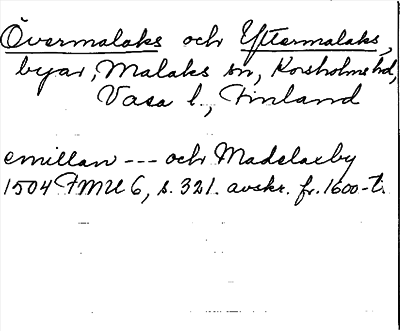 Övermalaks och Yttermalaks,
byar, Malaks sn, Korsholms hd,
Vasa l., Finland
emillan --- och Madelaxby
1504 FMU 6, s. 321. avskr. fr. 1600-t.